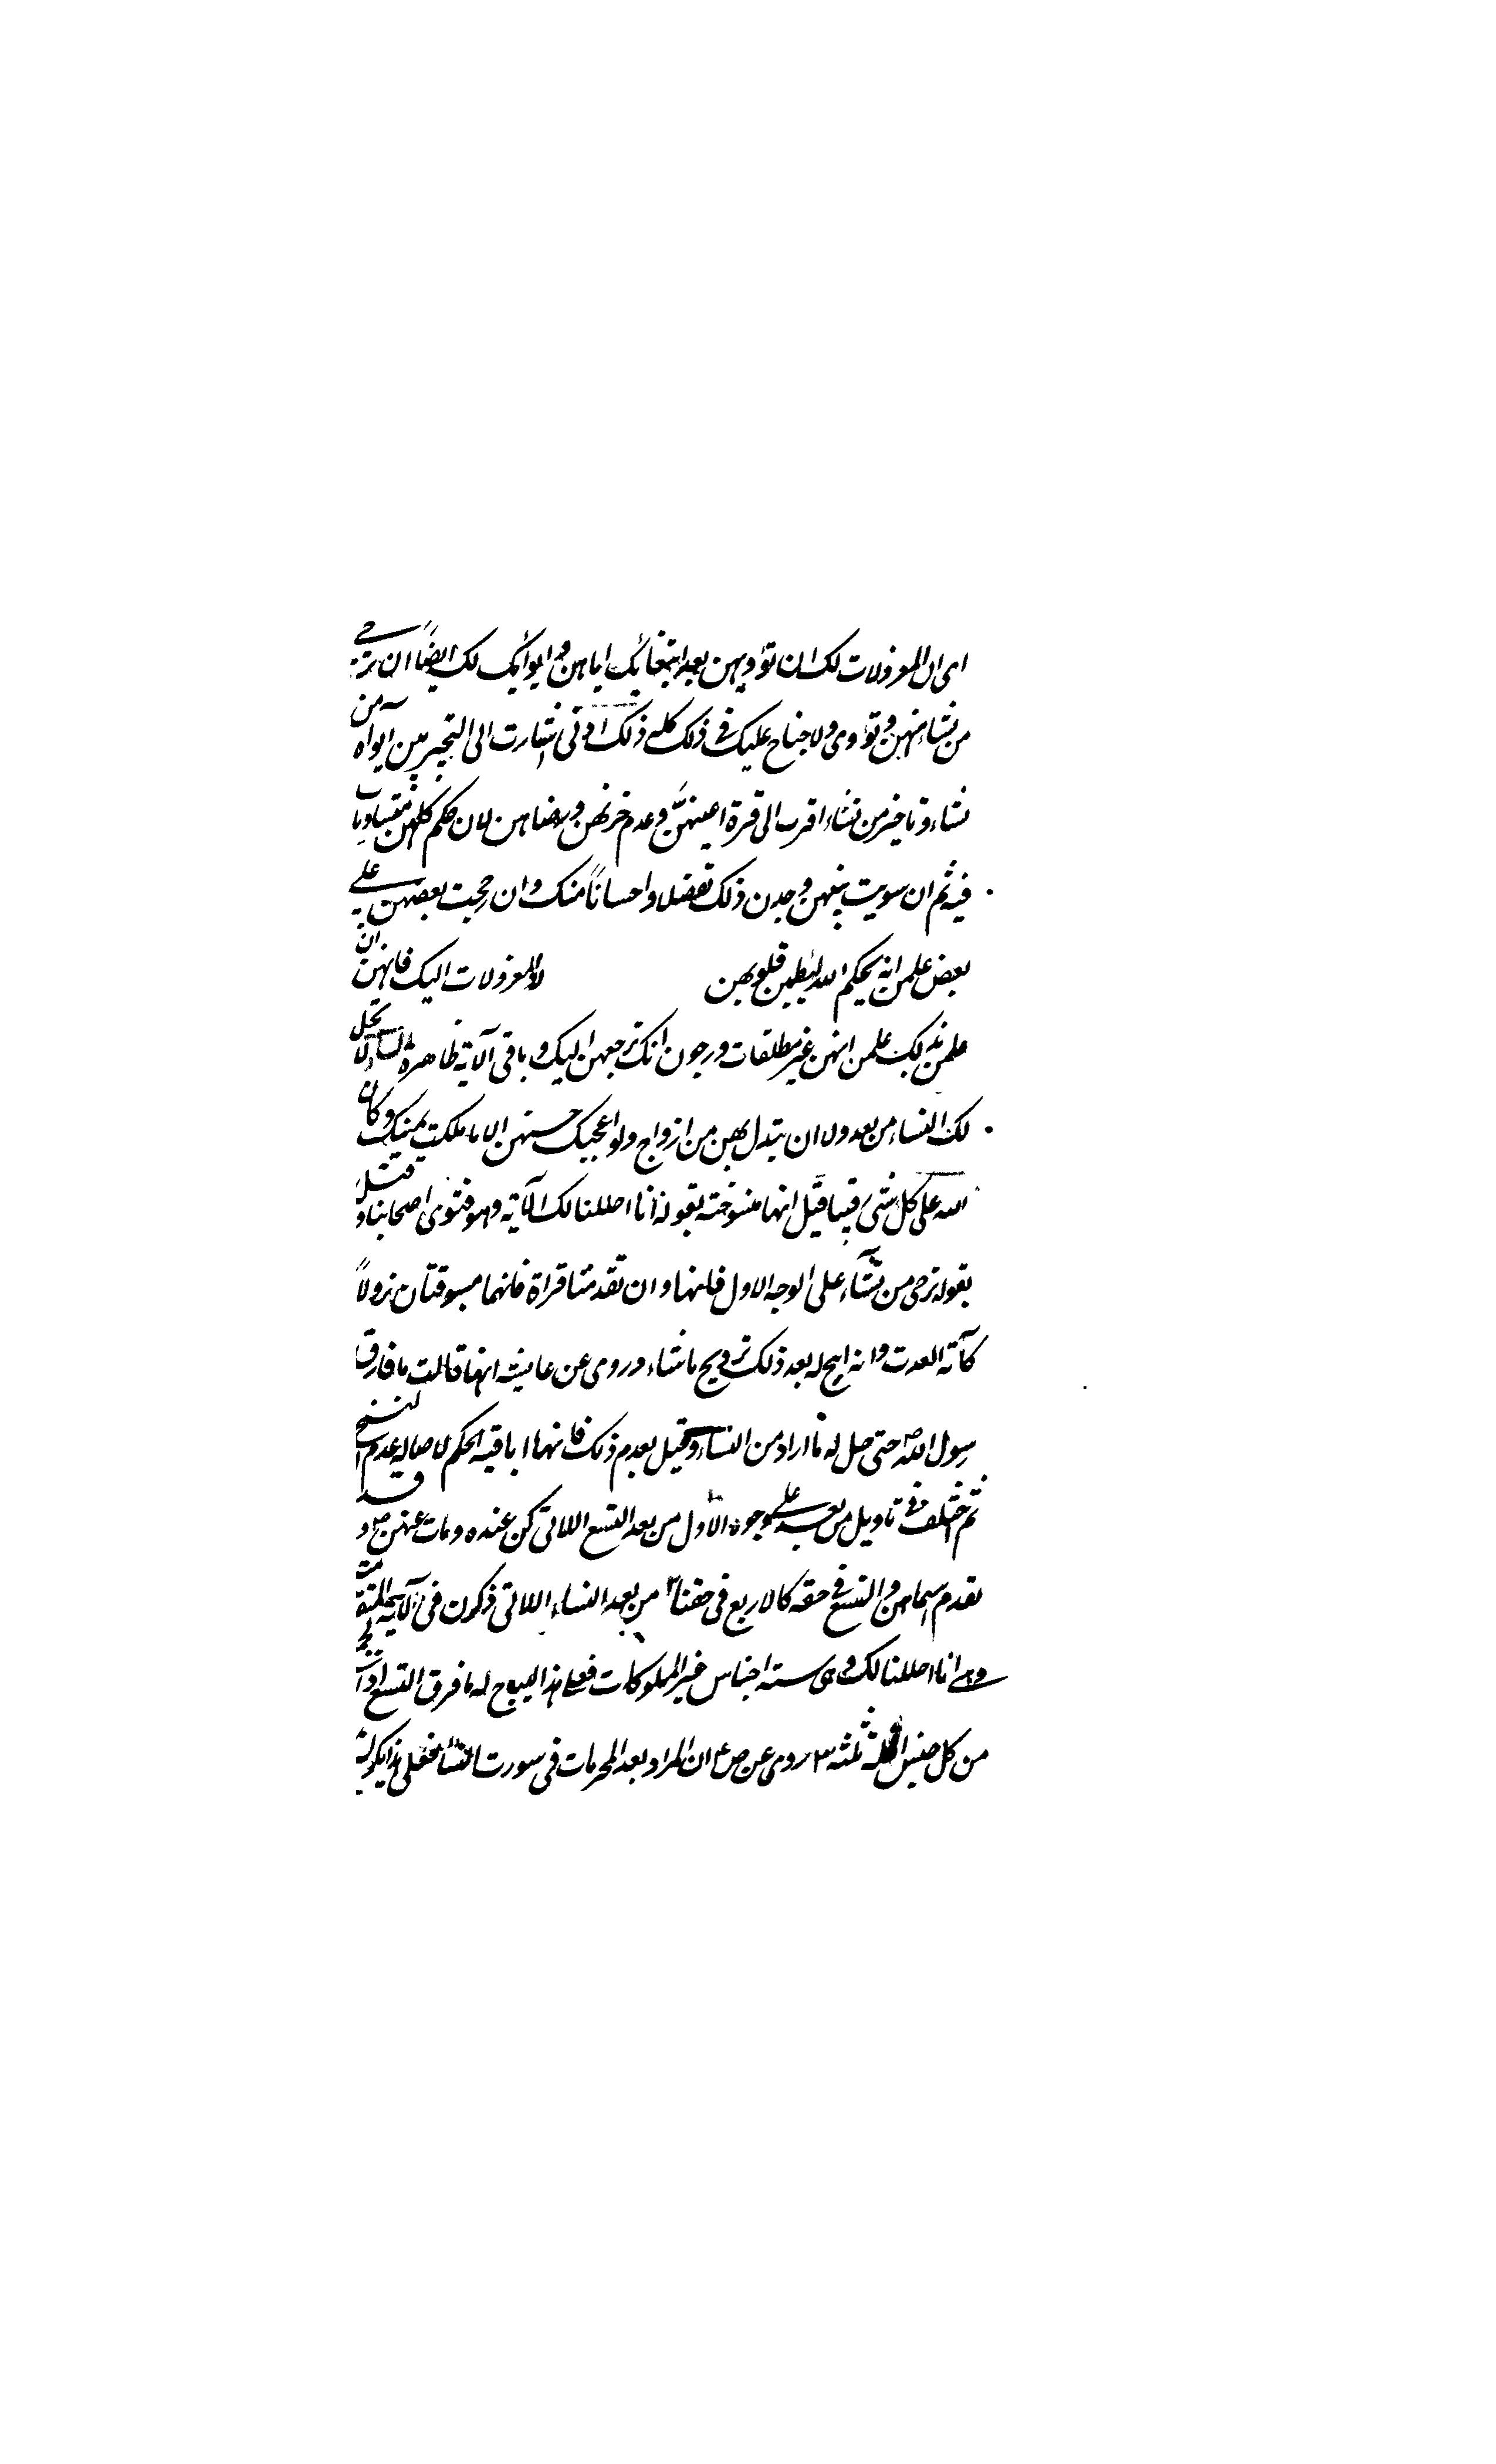 اى ان المعزولات لك ان تؤويهن بعد ابتغائك اياهن وايوائك لك ايضاً ان ترجى
من تشاء منهن وتؤوى ولا جناح عليك فى ذلك كله ذلك ادنى اشارت الى التخيير بين ايواه من
تشاء وتاخير من تشاء اقرب الى قرة اعينهنّ وعدم حزنهن ورضاهن لان حكم كلهن متساويات
فيه ثم ان سويت بينهن وجدن ذلك تفضلا واحساناً منك وان رجحت بعضهن على
بعض علمن انه بحكم الله ليطمئن قلوبهن المعزولات اليك فانهن ان
علمن بذلك علمن انهن غير مطلقات ورجون انك ترجعهن اليك وباقى الآية ظاهرة لا يحل
لك النساء من بعد ولا ان تبدل بهن من ازواج ولو اعجبك حسنهن الا ما ملكت يمينك وكان
الله على كل شئ رقيبا قيل انها منسوخة بقوله انا احللنا لك الآية وهو فتوى اصحابنا وقيل
بقوله ترجى من تشآء على الوجه الاول فانها وان تقدمتا قراة فانهما مسبوقتان نزولاً
كآية العدت وانه ابيح له بعد ذلك تزويج ما شاء وروى عن عايشه انها قالت ما فارق
رسول الله ص حتى حل له ما اراد من النساء وقيل بعدم ذلك فانها باقية الحكم لاصالة عدم النسخ
ثم اختلف فى تاويل من بعد على وجوه الاول من بعد التسع اللاتى كن عنده ومات عنهن ص وقد
تقدم اسماهن والتسع فى حقه كالاربع فى حقنا ٢ من بعد النساء اللاتى ذكرن فى الآية المتقدمة
وهى انا احللنا لك وهى ستة اجناس غير المملوكات فعلى هذا ايباح له ما فوق التسع
من كل جنس ثلثه ٣ روى عن ص ع ان المراد بعد المحرمات فى سورت النساء فعلى هذا يكون